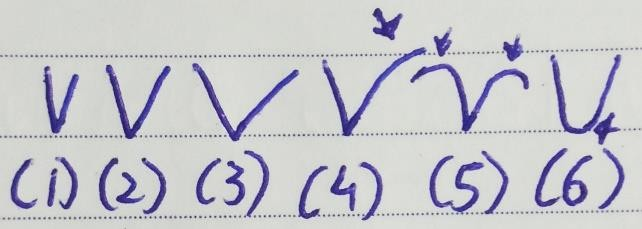 V V V V V V
(1) (2) (3) (4) (5) (6)